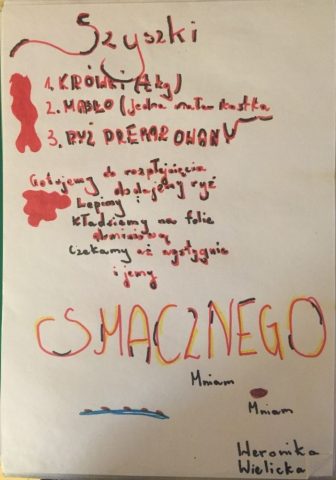 Szyszki
1. KRÓWKI (1kg)
2. MASŁO (jedna mała kostka
3. RYŻ PREPAROWANY
Gotujemy do rozpłynięcia
dodajemy ryż
Lepimy i
Kładziemy na folie
aluminiową
Czekamy aż wystygnie
i jemy
SMACZNEGO
Mniam
Mniam
Weronika
Wielicka